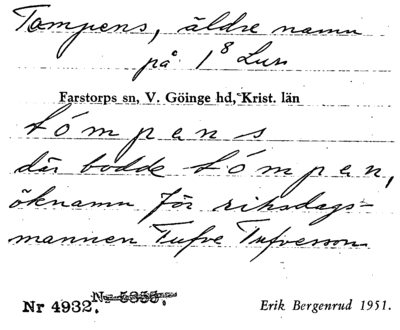 Tompens, äldre namn
på 1⁸ Lur
Farstorps sn, V. Göinge hd, Krist. län
tómpens
där bodde tómpen,
öknamn för riksdags-
mannen Tufve Tufvesson
Nr 4932.
Erik Bergenrud 1951.